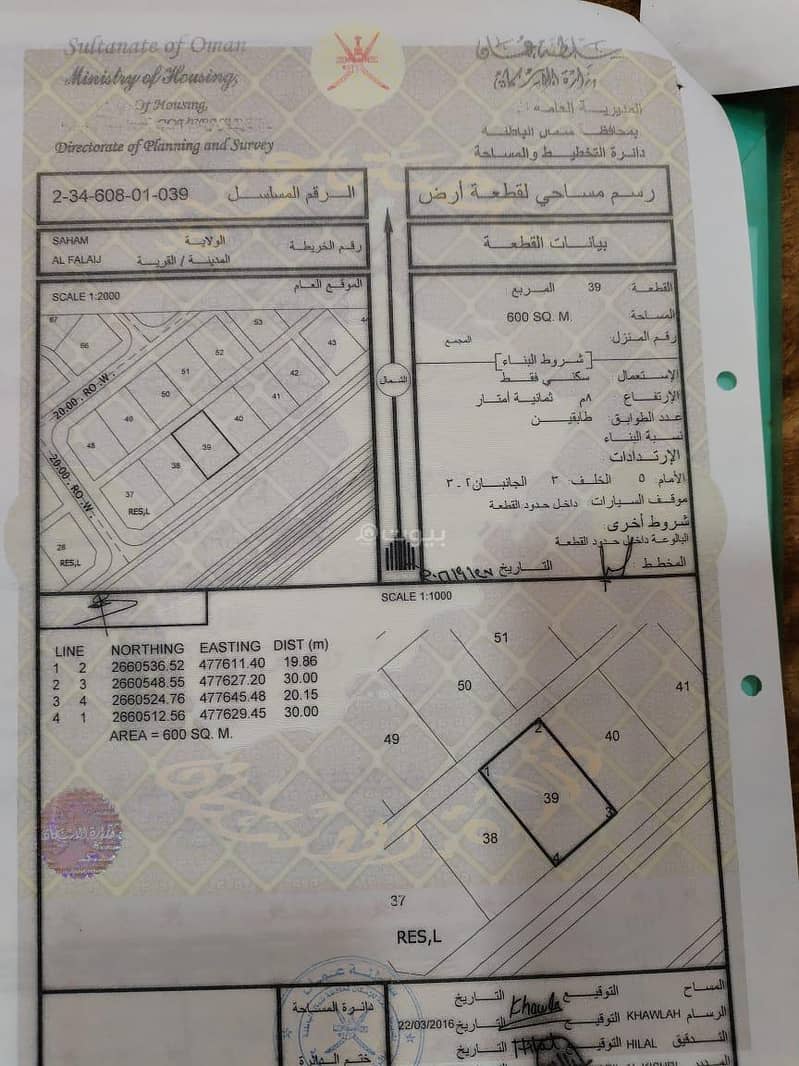 Sultanate of Oman
Ministry of Housing,
Of Housing,
Directorate of Planning and Survey
سلطنة عمان
وزارة الإسكان
المديرية العامة
بمحافظة شمال الباطنة
دائرة التخطيط والمساحة
رسم مساحي لقطعة أرض
الرقم المساسل 2-34-608-01-039
بيانات القطعة
رقم الخريطة
الولاية SAHAM
المدينة / القرية AL FALAIJ
الموقع العام
SCALE 1:2000
67
66
53
44
43
52
51
42
50
41
49
40
48
39
38
37
RES,L
28
RES,L
20:00 . RO :W .
20:00 . RO :W .
الشمال
القطعة 39 المربع :
المساحة 600 SQ. M.
رقم المنزل: المجمع
[شروط البناء]
الإستعمال : سكني فقط
الإرتفاع : ٨م ثمانية أمتار
عدد الطوابق: طابقين
نسبة البناء
الإرتدادات
الأمام ٥ الخلف ٣ الجانبان ٢ - ٣
موقف السيارات : داخل حدود القطعة
شروط أخرى:
البالوعة داخل حدود القطعة
المخطط : التاريخ
بيوت
SCALE 1:1000
LINE NORTHING EASTING DIST (m)
1 2 2660536.52 477611.40 19.86
2 3 2660548.55 477627.20 30.00
3 4 2660524.76 477645.48 20.15
4 1 2660512.56 477629.45 30.00
AREA = 600 SQ. M.
51
50
41
49
40
2
1
39
3
38
4
37
RES,L
وزارة الإسكان
دائرة المساحة
ختم الدائرة
المساح التوقيع التاريخ
الرسام KHAWLAH التوقيع Khawla التاريخ 22/03/2016
التدقيق HILAL التوقيع Hilal التاريخ